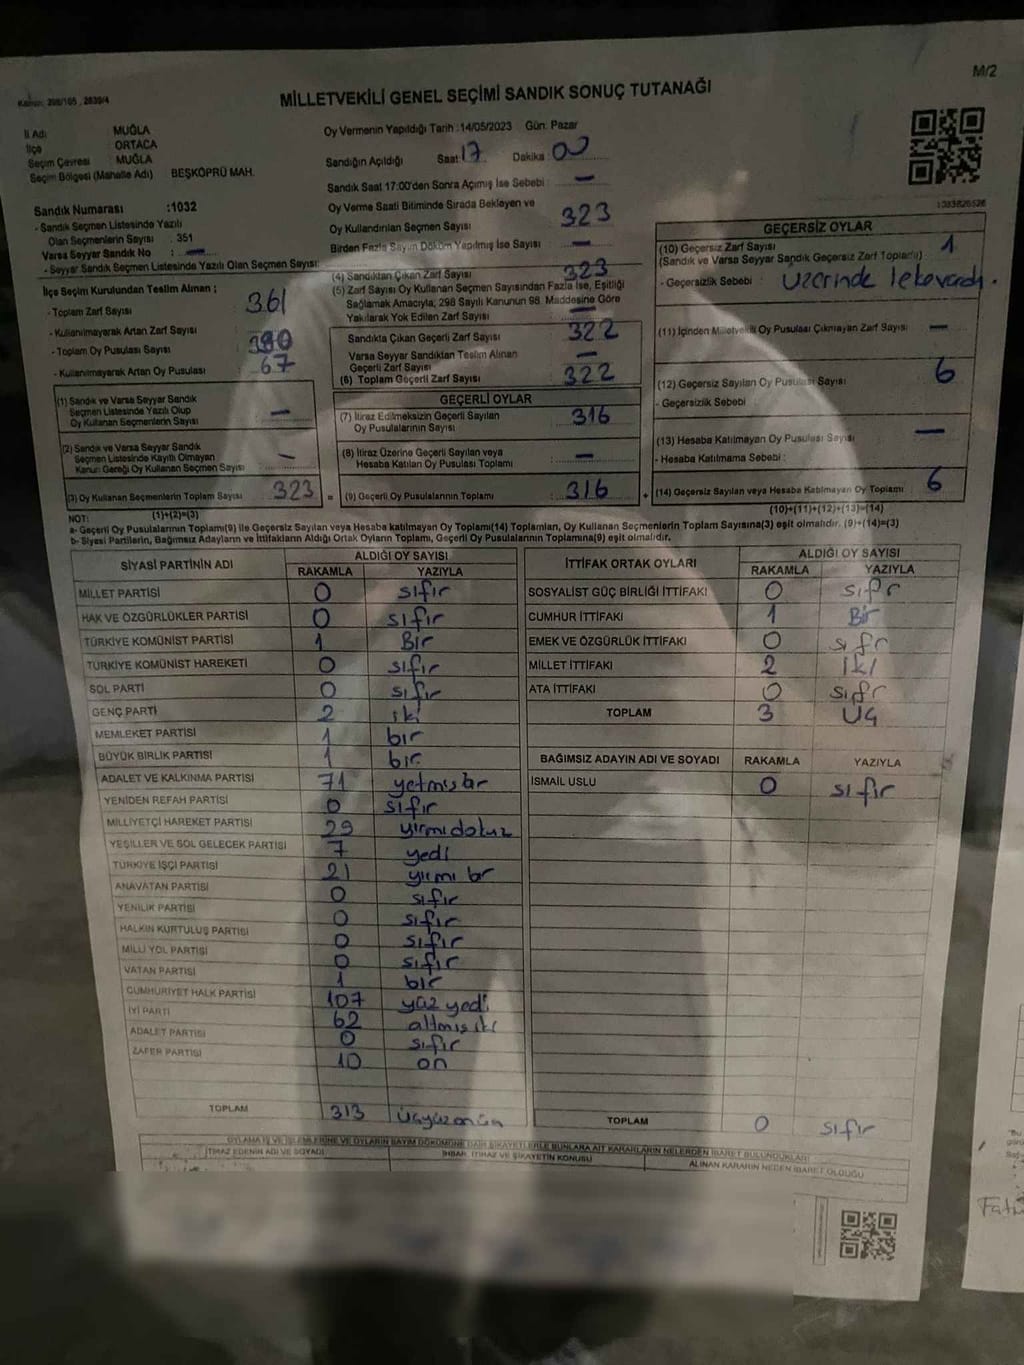 M/2
Kanun: 298/105 , 2839/4
MİLLETVEKİLİ GENEL SEÇİMİ SANDIK SONUÇ TUTANAĞI
İl Adı MUĞLA
İlçe ORTACA
Seçim Çevresi MUĞLA
Seçim Bölgesi (Mahalle Adı) BEŞKÖPRÜ MAH.
Oy Vermenin Yapıldığı Tarih :14/05/2023 Gün: Pazar
Sandığın Açıldığı Saat: 17 Dakika : 00
Sandık Saat 17:00'den Sonra Açımış İse Sebebi : –
Oy Verme Saati Bitiminde Sırada Bekleyen ve
Oy Kullandırılan Seçmen Sayısı 323
Birden Fazla Sayım Döküm Yapılmış İse Sayısı –
Sandık Numarası :1032
- Sandık Seçmen Listesinde Yazılı
Olan Seçmenlerin Sayısı : 351
Varsa Seyyar Sandık No : –
- Seyyar Sandık Seçmen Listesinde Yazılı Olan Seçmen Sayısı:
İlçe Seçim Kurulundan Teslim Alınan ;
- Toplam Zarf Sayısı 361
- Kullanılmayarak Artan Zarf Sayısı :
- Toplam Oy Pusulası Sayısı
- Kullanılmayarak Artan Oy Pusulası 67
(1) Sandık ve Varsa Seyyar Sandık
Seçmen Listesinde Yazılı Olup
Oy Kullanan Seçmenlerin Sayısı : –
(2) Sandık ve Varsa Seyyar Sandık
Seçmen Listesinde Kayıtlı Olmayan
Kanun Gereği Oy Kullanan Seçmen Sayısı : –
(3) Oy Kullanan Seçmenlerin Toplam Sayısı : 323 =
(1)+(2)=(3)
(4) Sandıktan Çıkan Zarf Sayısı 323
(5) Zarf Sayısı Oy Kullanan Seçmen Sayısından Fazla İse, Eşitliği
Sağlamak Amacıyla, 298 Sayılı Kanunun 98. Maddesine Göre
Yakılarak Yok Edilen Zarf Sayısı : –
Sandıkta Çıkan Geçerli Zarf Sayısı 322
Varsa Seyyar Sandıktan Teslim Alınan
Geçerli Zarf Sayısı : –
(6) Toplam Geçerli Zarf Sayısı : 322
GEÇERLİ OYLAR
(7) İtiraz Edilmeksizin Geçerli Sayılan
Oy Pusulalarının Sayısı 316
(8) İtiraz Üzerine Geçerli Sayılan veya
Hesaba Katılan Oy Pusulası Toplamı : –
(9) Geçerli Oy Pusulalarının Toplamı : 316 +
1033826526
GEÇERSİZ OYLAR
(10) Geçersiz Zarf Sayısı 1
(Sandık ve Varsa Seyyar Sandık Geçersiz Zarf Toplamı)
- Geçersizlik Sebebi : üzerinde leke vardı.
(11) İçinden Milletvekili Oy Pusulası Çıkmayan Zarf Sayısı –
(12) Geçersiz Sayılan Oy Pusulası Sayısı 6
- Geçersizlik Sebebi :
(13) Hesaba Katılmayan Oy Pusulası Sayısı –
- Hesaba Katılmama Sebebi :
(14) Geçersiz Sayılan veya Hesaba Katılmayan Oy Toplamı : 6
(10)+(11)+(12)+(13)=(14)
NOT:
a- Geçerli Oy Pusulalarının Toplamı(9) ile Geçersiz Sayılan veya Hesaba katılmayan Oy Toplamı(14) Toplamları, Oy Kullanan Seçmenlerin Toplam Sayısına(3) eşit olmalıdır. (9)+(14)=(3)
b- Siyasi Partilerin, Bağımsız Adayların ve İttifakların Aldığı Ortak Oyların Toplamı, Geçerli Oy Pusulalarının Toplamına(9) eşit olmalıdır.
SİYASİ PARTİNİN ADI ALDIĞI OY SAYISI
RAKAMLA YAZIYLA
MİLLET PARTİSİ 0 sıfır
HAK VE ÖZGÜRLÜKLER PARTİSİ 0 sıfır
TÜRKİYE KOMÜNİST PARTİSİ 1 Bir
TÜRKİYE KOMÜNİST HAREKETİ 0 sıfır
SOL PARTİ 0 sıfır
GENÇ PARTİ 2 iki
MEMLEKET PARTİSİ 1 bir
BÜYÜK BİRLİK PARTİSİ 1 bir
ADALET VE KALKINMA PARTİSİ 71 yetmişbir
YENİDEN REFAH PARTİSİ 0 sıfır
MİLLİYETÇİ HAREKET PARTİSİ 29 yirmidokuz
YEŞİLLER VE SOL GELECEK PARTİSİ 7 yedi
TÜRKİYE İŞÇİ PARTİSİ 21 yirmi bir
ANAVATAN PARTİSİ 0 sıfır
YENİLİK PARTİSİ 0 sıfır
HALKIN KURTULUŞ PARTİSİ 0 sıfır
MİLLİ YOL PARTİSİ 0 sıfır
VATAN PARTİSİ 1 bir
CUMHURİYET HALK PARTİSİ 107 yüz yedi
İYİ PARTİ 62 altmış iki
ADALET PARTİSİ 0 sıfır
ZAFER PARTİSİ 10 on
TOPLAM 313 üçyüzonüç
İTTİFAK ORTAK OYLARI ALDIĞI OY SAYISI
RAKAMLA YAZIYLA
SOSYALİST GÜÇ BİRLİĞİ İTTİFAKI 0 sıfır
CUMHUR İTTİFAKI 1 Bir
EMEK VE ÖZGÜRLÜK İTTİFAKI 0 sıfır
MİLLET İTTİFAKI 2 iki
ATA İTTİFAKI 0 sıfır
TOPLAM 3 üç
BAĞIMSIZ ADAYIN ADI VE SOYADI RAKAMLA YAZIYLA
İSMAİL USLU 0 sıfır
TOPLAM 0 sıfır
OYLAMA İŞ VE İŞLEMLERİNE VE OYLARIN SAYIM DÖKÜMÜNE DAİR ŞİKAYETLERLE BUNLARA AİT KARARLARIN NELERDEN İBARET BULUNDUKLARI
İTİRAZ EDENİN ADI VE SOYADI İHBAR, İTİRAZ VE ŞİKAYETİN KONUSU ALINAN KARARIN NEDEN İBARET OLDUĞU